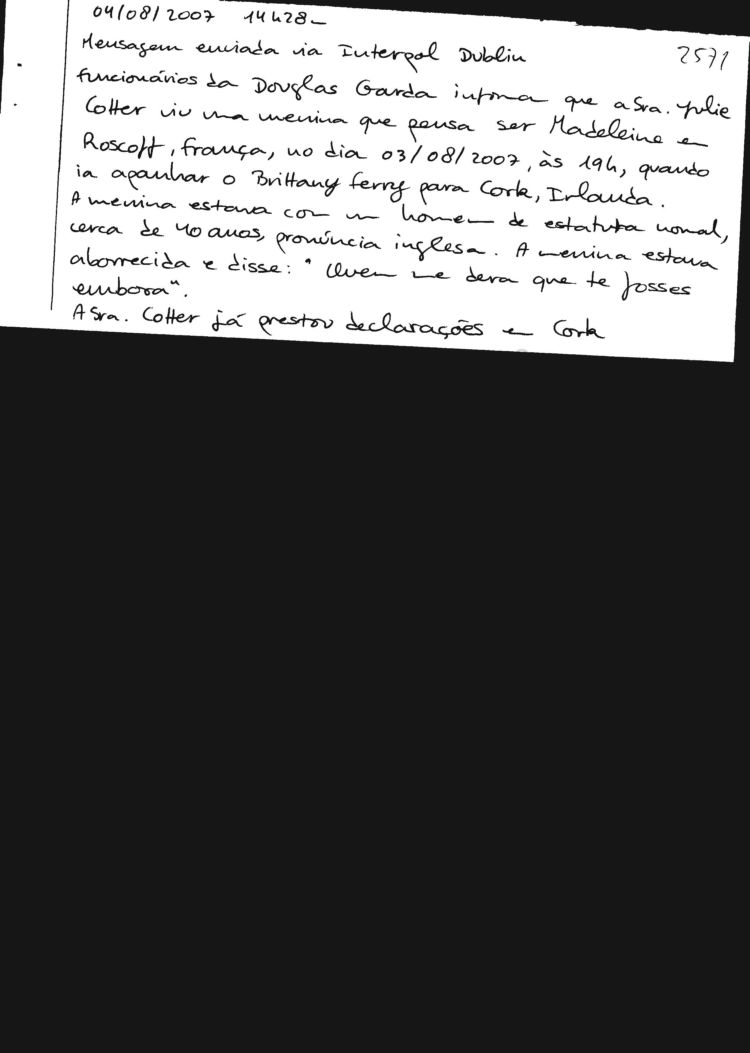 04/08/2007 14h28-
2571
Mensagem enviada via Interpol Dublin
funcionários da Douglas Garda informa que a Sra. Julie
Cotter viu uma menina que pensa ser Madeleine em
Roscoff, França, no dia 03/08/2007, às 19h, quando
ia apanhar o Brittany ferry para Cork, Irlanda.
A menina estava com um homem de estatura normal,
cerca de 40 anos, pronúncia inglesa. A menina estava
aborrecida e disse: "Quem me dera que te fosses
embora".
A Sra. Cotter já prestou declarações em Cork